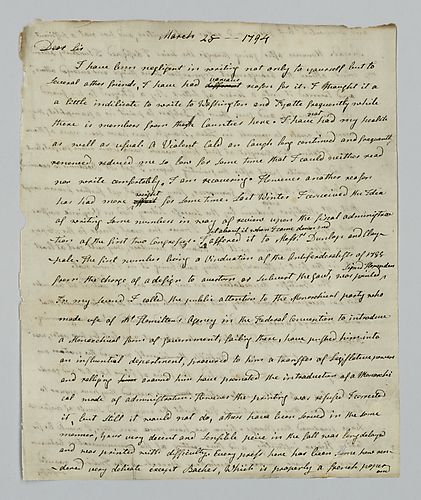 March 25 - 1794
Dear Sir
I have been negligent in writing not only to yourself but to
several other friends, I have had various reasons for it. I thought it a
a little indilicate to write to and frequently while
there is members from their Counties here. I have had not my health
as well as usual a Violent Cold an Cough long continued and frequently
renewed reduced me so low for some time that I could neither read
nor write comfortably, I am recovering. However another reason
has had more weight for some time. Last Winter I conceived the Idea
of writing some numbers in way of review upon the fiscal administra
tion of the first two Congresses, just about it when I came down and
offered it to Messrs. Dunlap and Clay
pole. The first number being a Vindication of the Antifederalists of 1788
from the charge of a design to overturn or subvert the Govt, was printed
In my second I called the public attention to the Monarchical party who
made use of Mr Hamiltons Agency in the Federal Convention to introduce
a Monarchical form of government, failing there, have pushed him into
an influential department, procured to him a transfer of Legislative powers
and rallying around him have promoted the introduction of a Monarchi
cal mode of administration. However the printing was refused I corrected
it, but still it would not do, others have been served in the same
manner, your very decent and sensible piece in the fall was long delayed
and was printed with difficulty. Every press here has been some how ren-
dered very delicate except Baches, Which is properly a french paper